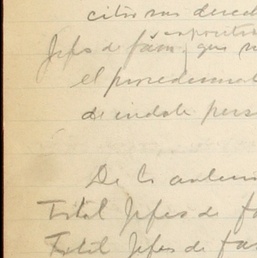 citos sus derech
Jefes de fam, que n
el procedimient
de indole pers
De lo anterior
Total Jefes de fa
Total Jefes de fa